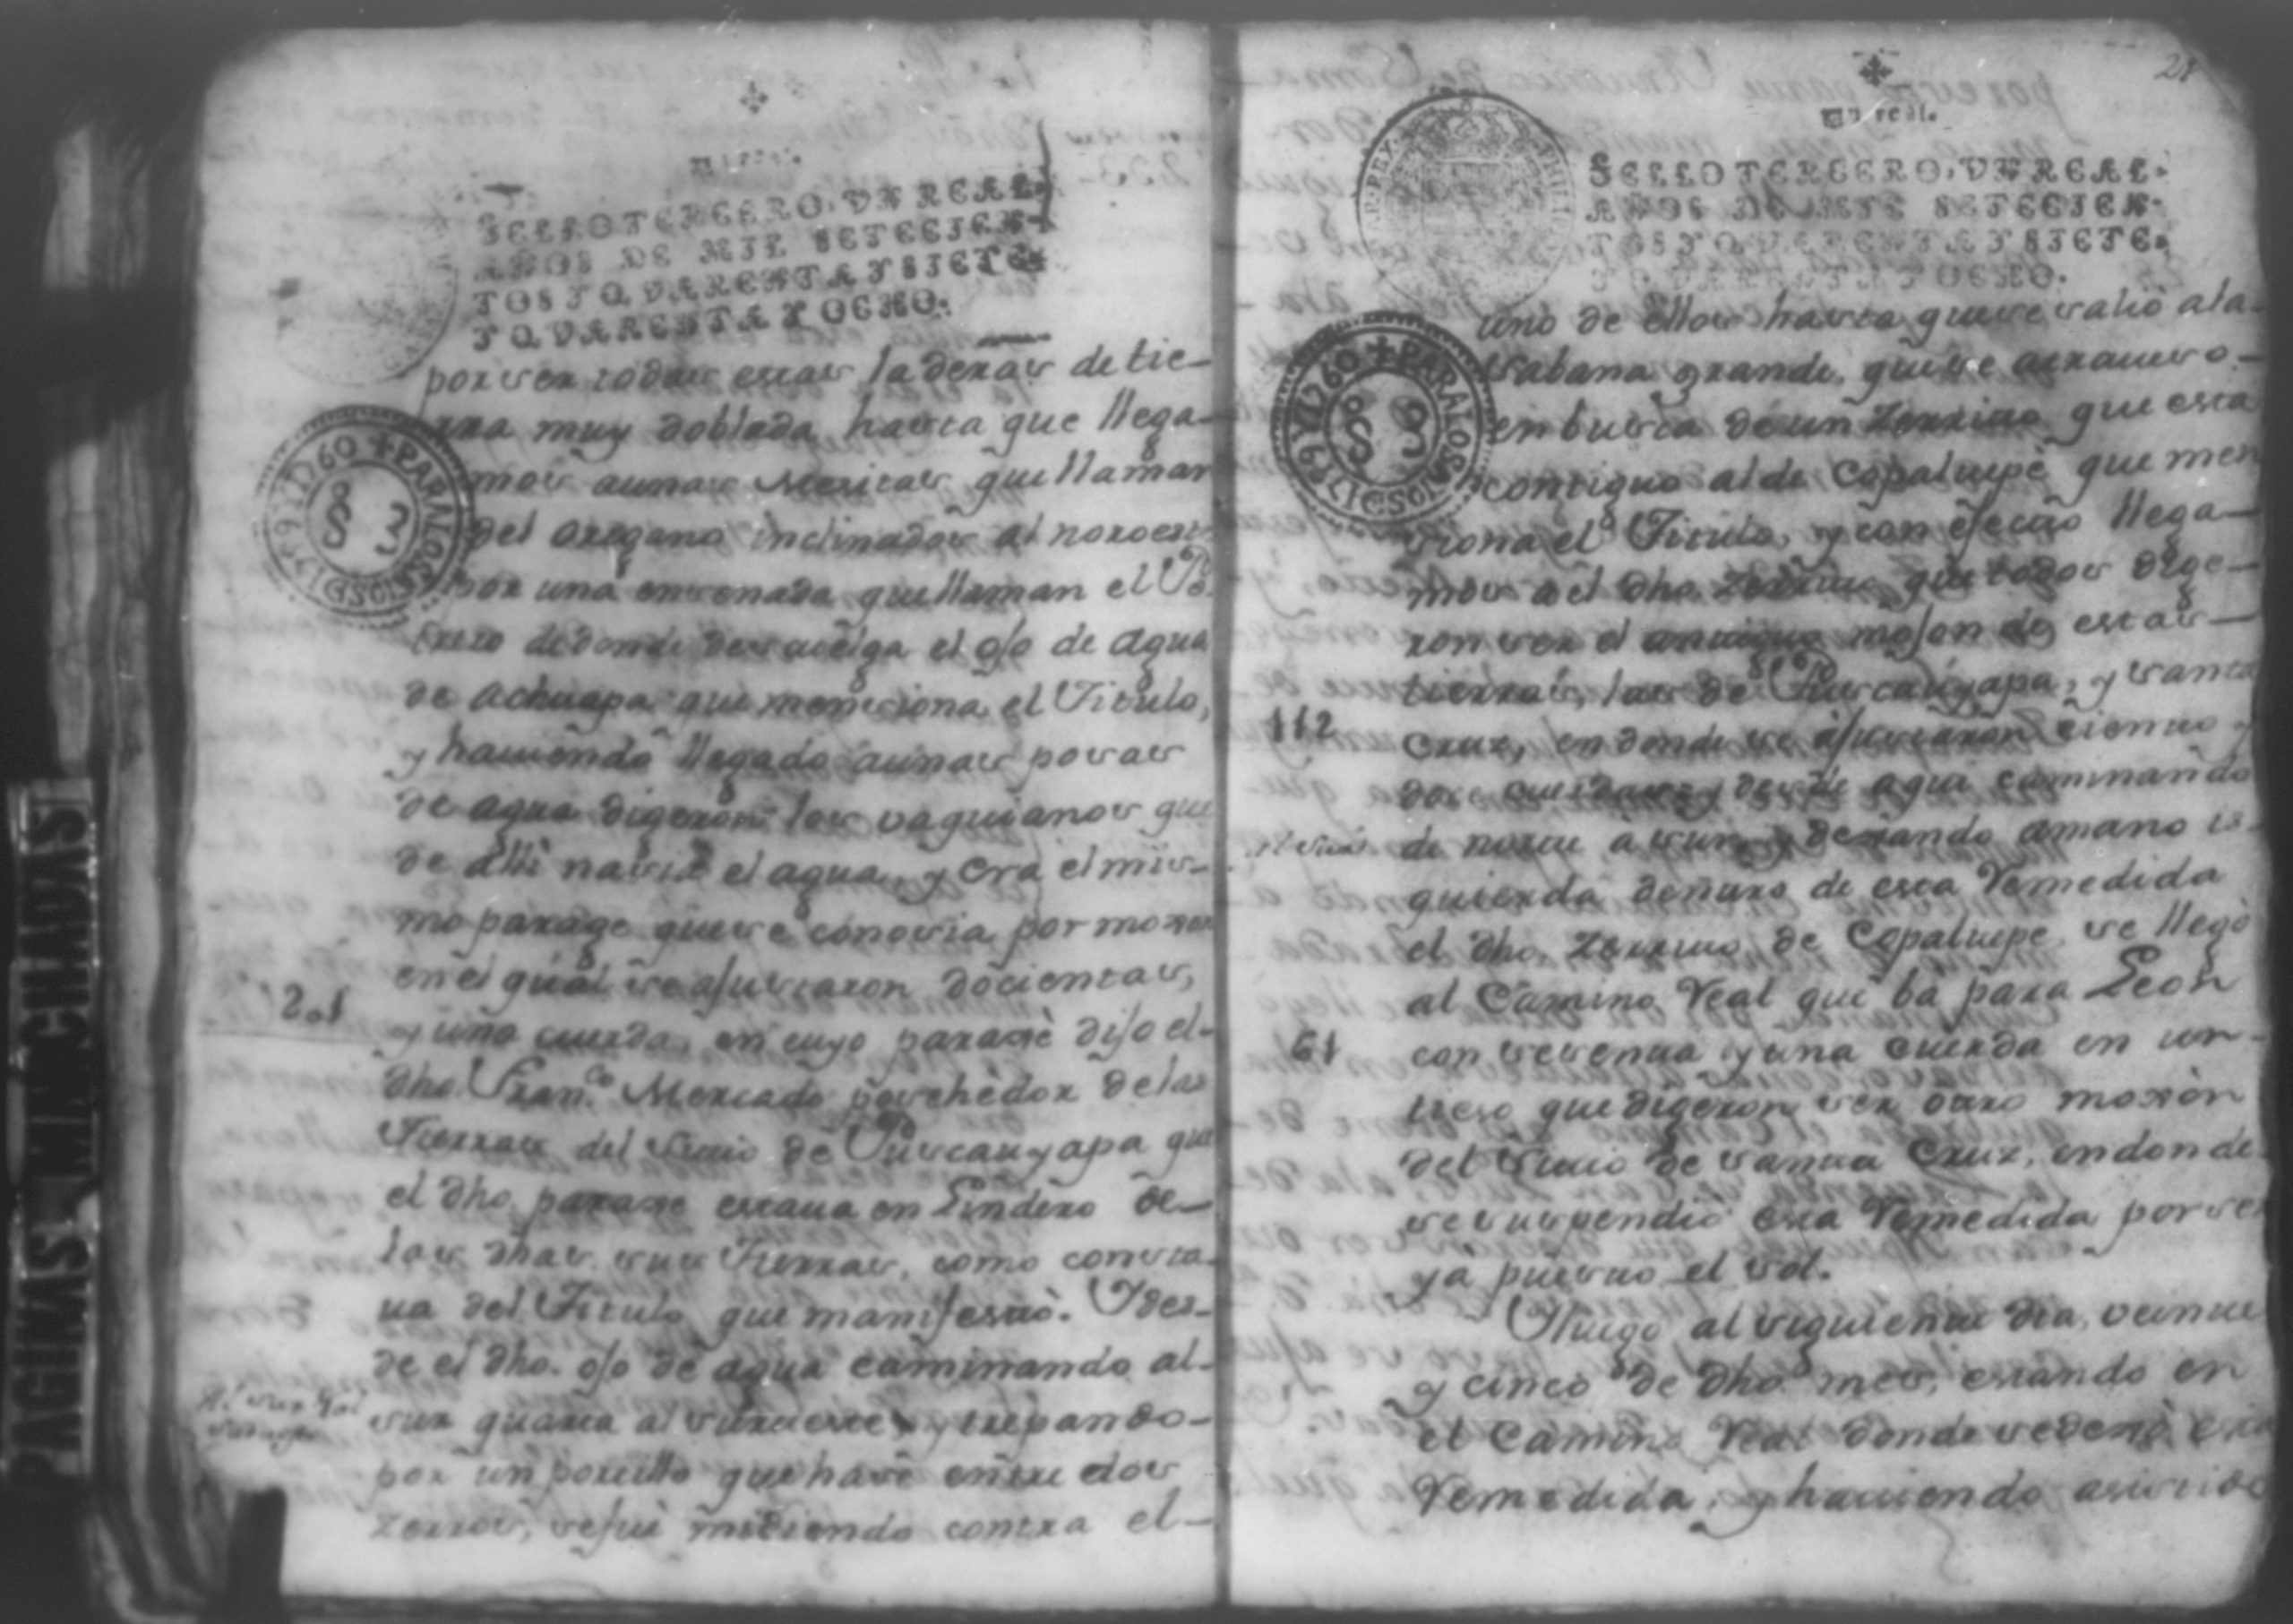 Un real.
SELLO TERCERO, VN REAL,
AÑOS DE MIL SETECIEN-
TOS Y QVARENTA Y SIETE,
Y QVARENTA Y OCHO.
por ser todas estas laderas de tie-
rra muy doblada hasta que llega-
mos a unas Mesitas que llaman
del oregano inclinados al noroest
por una ensenada que llaman el Po-
trero de donde descuelga el ojo de agua
de Achuapa que mensiona el Titulo,
y haviendo llegado a unas posas
de agua digeron los vaquianos que
de alli nasia el agua, y era el mis-
mo parage que se conosia por mojon
en el qual se ajustaron docientas,
201
y una cuerda, en cuyo paraje dijo el-
dho. Fran.co Mercado poschedor de las
Tierras del sitio de Puscauyapa que
el dho. paraje estaua en Lindero de-
las dhas. sus Tierras, como consta-
ua del Titulo que manifestó. Y des-
de el dho. ojo de agua caminando al-
Al sur
sur quarta al surueste y trepando-
por un portillo que hase entre dos
zerros, se fue midiendo contra el-
28
Un real.
SELLO TERCERO, VN REAL,
AÑOS DE MIL SETECIEN-
TOS Y QVARENTA Y SIETE,
Y QVARENTA Y OCHO.
uno de ellos hasta que se salió a la-
sabana grande, que se atraueso-
en busca de un zerrito que está
contiguo al de Copaltepe que men
siona el Titulo, y con efecto llega-
mos a el dho. zerrito, que todos dige-
ron ser el antiguo mojon de estas-
tierras, las de Puscauyapa, y santa
112
Cruz, en donde se ajustaron ciento y
dose cuerdas, y desde aqui caminando
al sur
de norte a sur, y dexando a mano is-
quierda dentro de esta Remedida
el dho. zerrito de Copaltepe se llegó
al Camino Real que ba para Leon
61
con sesenta y una cuerda en un-
tieso que digeron ser otro moxòn
del sitio de santa Cruz, en donde-
se suspendió esta Remedida por ser
ya puesto el sol.
Y luego al siguiente dia, veinte
y cinco de dho. mes, estando en
el Camino Real donde se dexó esta
Remedida, y haviendo asistido
PARA LOS AÑOS D 1759 Y 1760
PARA LOS AÑOS D 1759 Y 1760
PAGINAS MANCHADAS